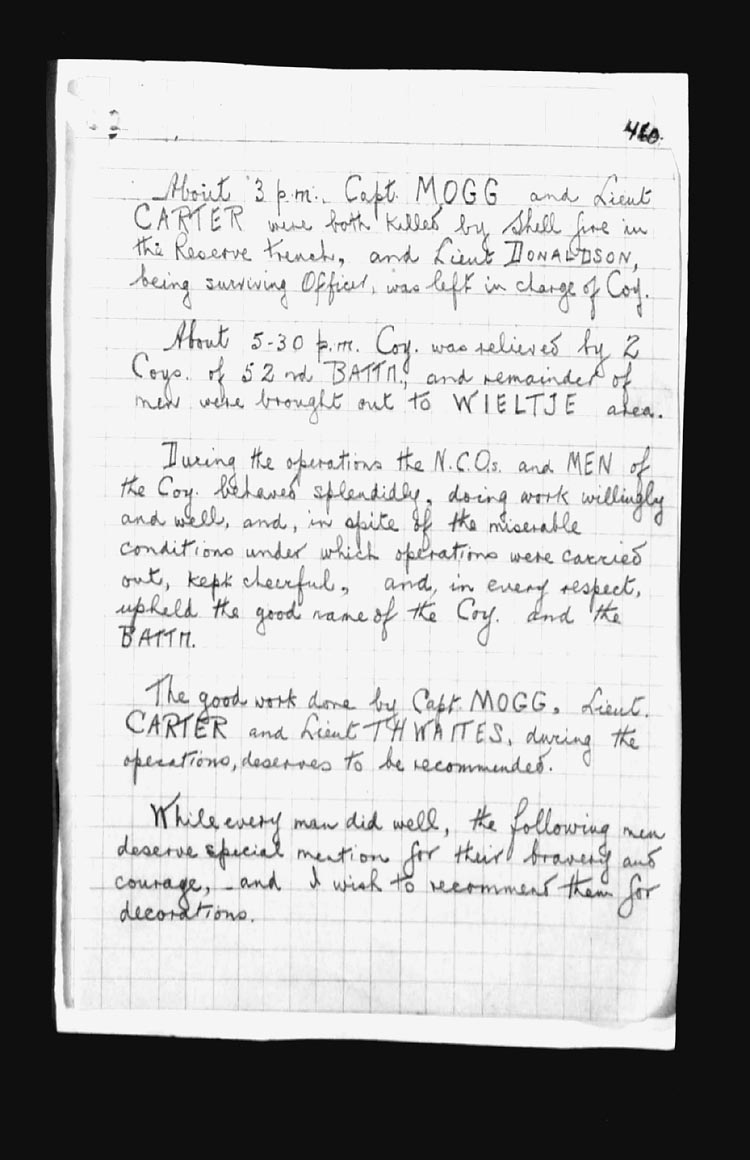 460.
About 3 p.m., Capt. MOGG and Lieut
CARTER were both killed by Shell fire in
the Reserve trench, and Lieut DONALDSON,
being surviving Officer, was left in charge of Coy.
About 5-30 p.m. Coy. was relieved by 2
Coys. of 52nd BATTN., and remainder of
men were brought out to WIELTJE area.
During the operations the N.C.Os. and MEN of
the Coy. behaved splendidly, doing work willingly
and well, and, in spite of the miserable
conditions under which operations were carried
out, kept cheerful, and, in every respect,
upheld the good name of the Coy. and the
BATTN.
The good work done by Capt. MOGG, Lieut.
CARTER and Lieut THWAITES, during the
operations, deserves to be recommended.
While every man did well, the following men
deserve special mention for their bravery and
courage, and I wish to recommend them for
decorations.